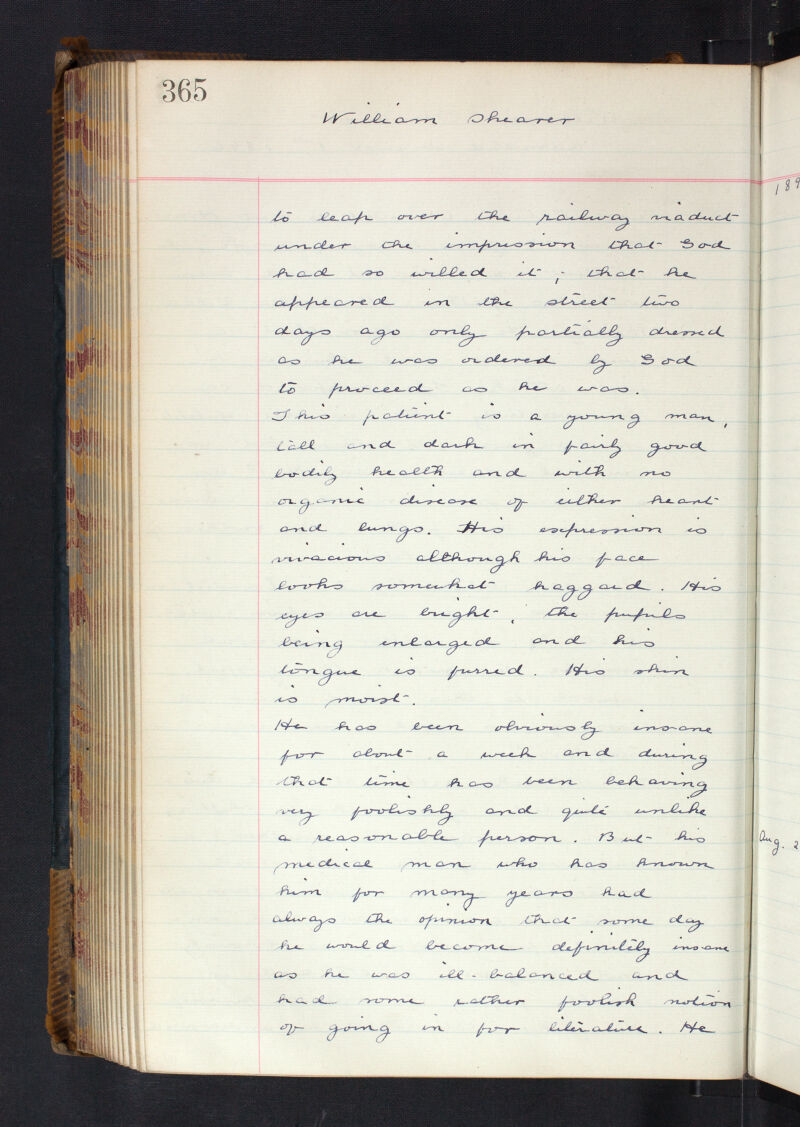 365
William Shearer
to leap over the railway viaduct
under the impression that God
had so willed it; that he
appeared in the street two
days ago only partially dressed
as he was ordered by God
to proceed as he was.
This patient is a young man,
tall and dark in fairly good
bodily health and with no
organic disease of either heart
and lungs. His expression is
vivacious although his face
looks somewhat haggard. His
eyes are bright, the pupils
being enlarged and his
tongue is furred. His skin
is moist.
He has been obviously insane
for about a week and during
that time has been behaving
very foolishly and quite unlike
a reasonable person. But his
medical man who has known
him for many years had
always the opinion that some day
he would become definitely insane
as he was ill-balanced and
had some rather foolish notion
of going in for literature. He
189
Aug. 2